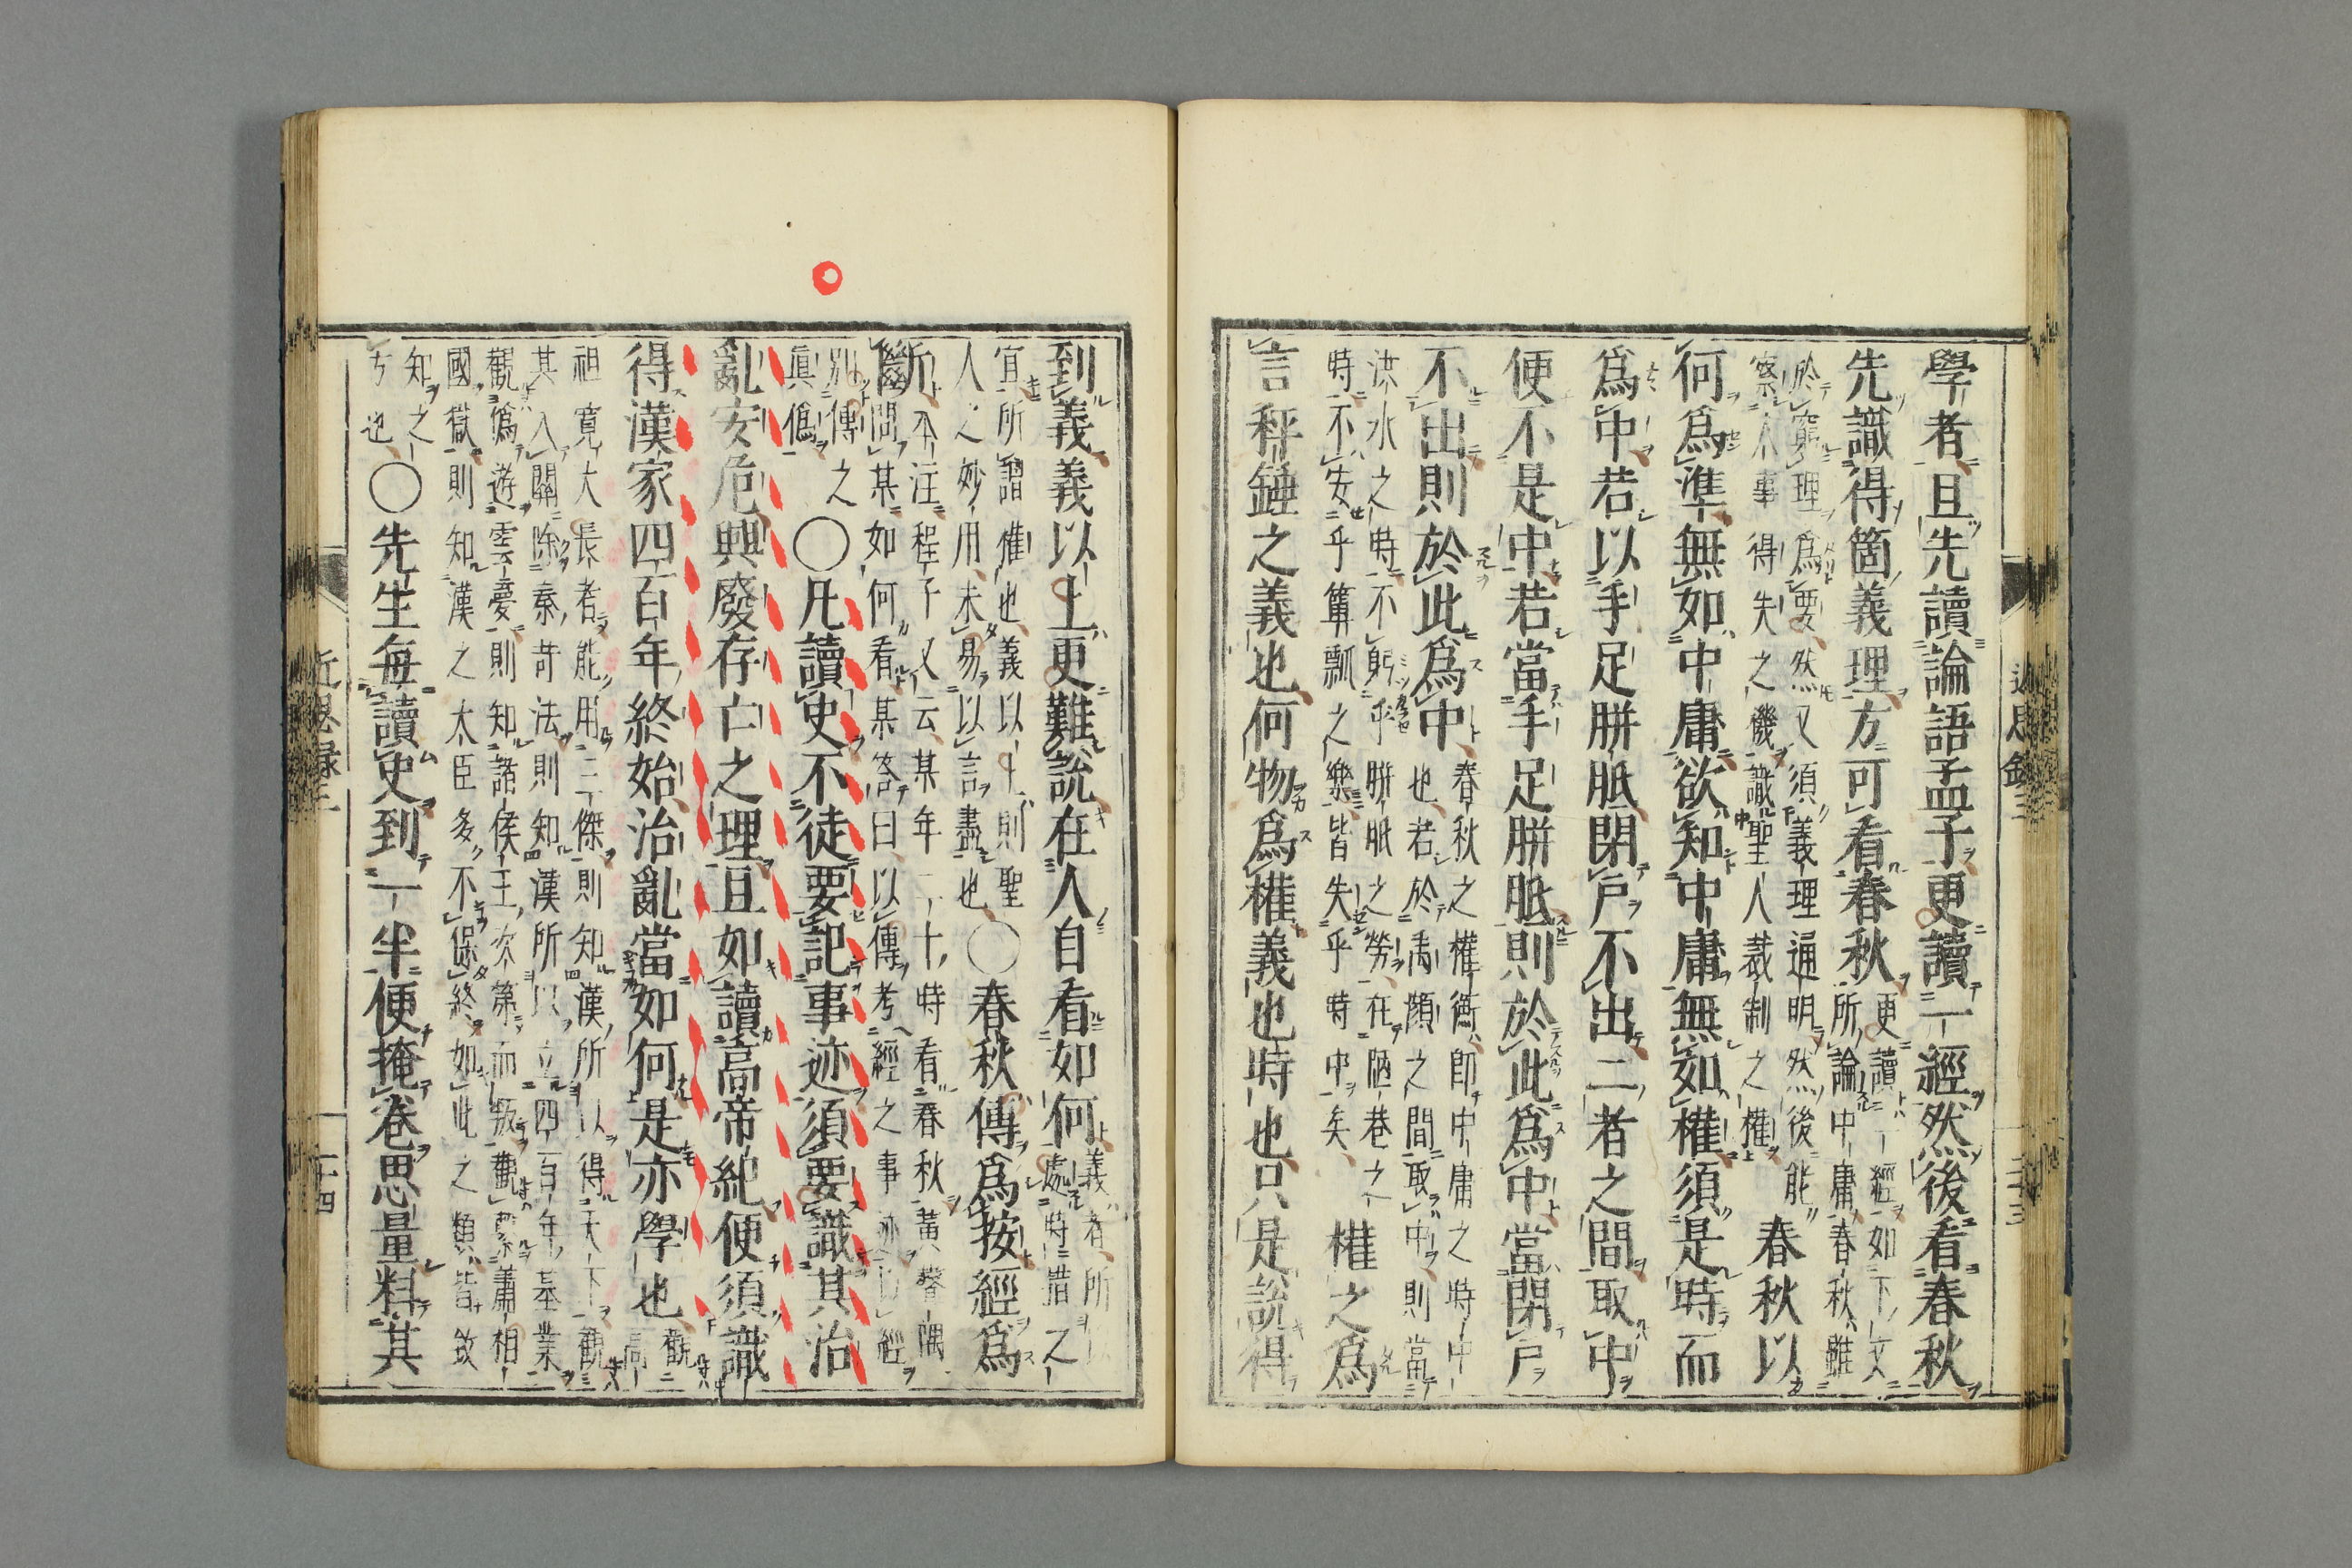 學者且先讀論語孟子更讀一經然後看春秋
先識得箇義理方可看春秋
更讀一經如下文
所論中庸春秋雖
於窮理爲要然又須義理通明然後能
察人事得失之機識聖人裁制之權
春秋以
何爲準無如中庸欲知中庸無如權須是時而
爲中若以手足胼胝閉戸不出二者之間取中
便不是中若當手足胼胝則於此爲中當閉戸
不出則於此爲中
春秋之權衡即中庸之時中
也若於禹顔之間取中則當
洪水之時不躬乎胼胝之勞在陋巷之
時不安乎簞瓢之樂皆失乎時中矣
權之爲
言秤錘之義也何物爲權義也時也只是説得
到義義以上更難説在人自看如何
義者所以
處時措之
宜所謂權也義以上則聖
人之妙用未易以言盡也
○春秋傳爲按經爲
斷
本注程子又云某年二十時看春秋黃聱隅
問某如何看某答曰以傳考經之事迹以經
別傳之
眞僞
○凡讀史不徒要記事迹須要識其治
亂安危興廢存亡之理且如讀高帝紀便須識
得漢家四百年終始治亂當如何是亦學也
觀高
祖寛大長者能用三傑則知漢所以得天下觀
其入關除秦苛法則知漢所以立四百年基業
觀僞遊雲夢則知諸侯王次第而叛觀繋蕭相
國獄則知漢之大臣多不保終如此之類皆致
知之
方也
○先生每讀史到一半便掩卷思量料其
近思録三
二十三
近思録三
二十四